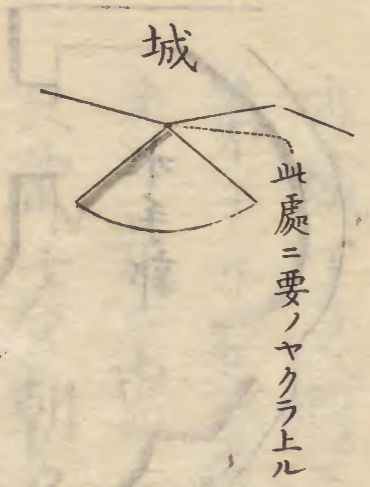 城
此處ニ要ノヤクラ上ル